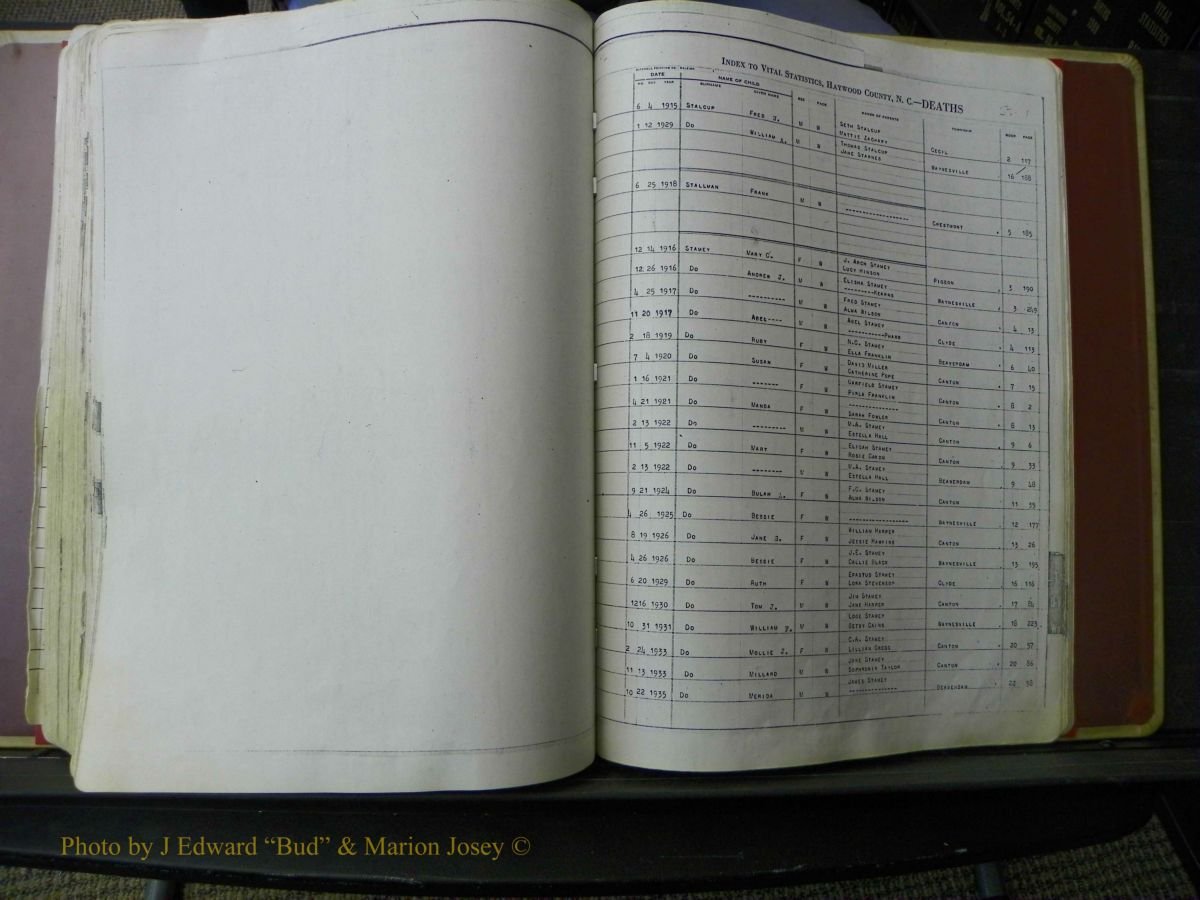 INDEX TO VITAL STATISTICS, HAYWOOD COUNTY, N. C.—DEATHS
DATE NAME OF CHILD SEX RACE NAMES OF PARENTS TOWNSHIP BOOK PAGE
MO. DAY YEAR SURNAME GIVEN NAME
6 4 1915 STALCUP FRED J. M W SETH STALCUP
MATTIE ZACHARY CECIL 2 117
1 12 1929 Do WILLIAM A. M W THOMAS STALCUP
JANE STARNES WAYNESVILLE 16 188
6 25 1918 STALLMAN FRANK M W ----------------- CRESTMONT 5 185
12 14 1916 STAMEY MARY C. F W J. ARCH STAMEY
LUCY HINSON PIGEON 3 190
12 26 1916 Do ANDREW J. M W ELISHA STAMEY
--------KEARNS WAYNESVILLE 3 249
4 25 1917 Do ---------- M W FRED STAMEY
ALMA WILSON CANTON 4 13
11 20 1917 Do ABEL---- M W ABEL STAMEY
----------PHARR CLYDE 4 113
2 18 1919 Do RUBY F W N.C. STAMEY
ELLA FRANKLIN BEAVERDAM 6 40
7 4 1920 Do SUSAN F W DAVID MILLER
CATHERINE POPE CANTON 7 15
1 16 1921 Do ------- F W GARFIELD STAMEY
PURLA FRANKLIN CANTON 8 2
4 21 1921 Do MANDA F W -------------
SARAH FOWLER CANTON 8 13
2 13 1922 Do --------- M W M.A. STAMEY
ESTELLA HALL CANTON 9 6
11 5 1922 Do MARY F W ELIJAH STAMEY
ROSIE CARON CANTON 9 33
2 13 1922 Do -------- M W M.A. STAMEY
ESTELLA HALL BEAVERDAM 9 48
9 21 1924 Do BULAH A. F W F.C. STAMEY
ALMA WILSON CANTON 11 35
4 26 1925 Do BESSIE F W ----------------- WAYNESVILLE 12 177
8 19 1926 Do JANE B. F W WILLIAM HARPER
JESSIE HAWKINS CANTON 13 26
4 26 1926 Do BESSIE F W J.E. STAMEY
CALLIE BLACK WAYNESVILLE 13 195
6 20 1929 Do RUTH F W ERASTUS STAMEY
LORA STEVENSON CLYDE 16 116
1216 1930 Do TOM J. M W JIM STAMEY
JANE HARPER CANTON 17 84
10 31 1931 Do WILLIAM P. M W LOGE STAMEY
BETSY CAINS WAYNESVILLE 18 223
2 24 1933 Do MOLLIE Z. F W C.A. STAMEY
LILLIAN GROSS CANTON 20 57
11 13 1933 Do MILLARD M W JANE STAMEY
SOPHRONIA TAYLOR CANTON 20 86
10 22 1935 Do MERIDA M W JAMES STAMEY
-------------- BEAVERDAM 22 58
Photo by J Edward “Bud” & Marion Josey ©